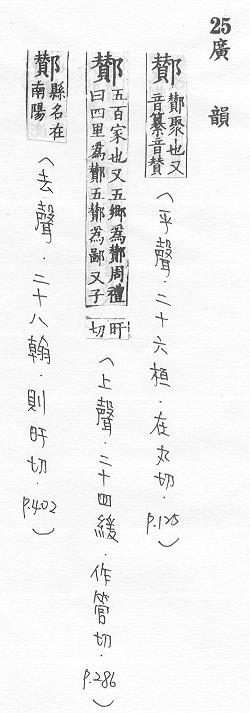 25廣韻
酇 酇聚也又音纂音贊(平聲．二十六桓．在丸切．p.125)
酇 五百家也又五鄉為酇周禮曰四里為酇五酇為鄙又子旰切(上聲．二十四緩．作管切．p.286)
酇 縣名在南陽(去聲．二十八翰．則旰切．p.402)